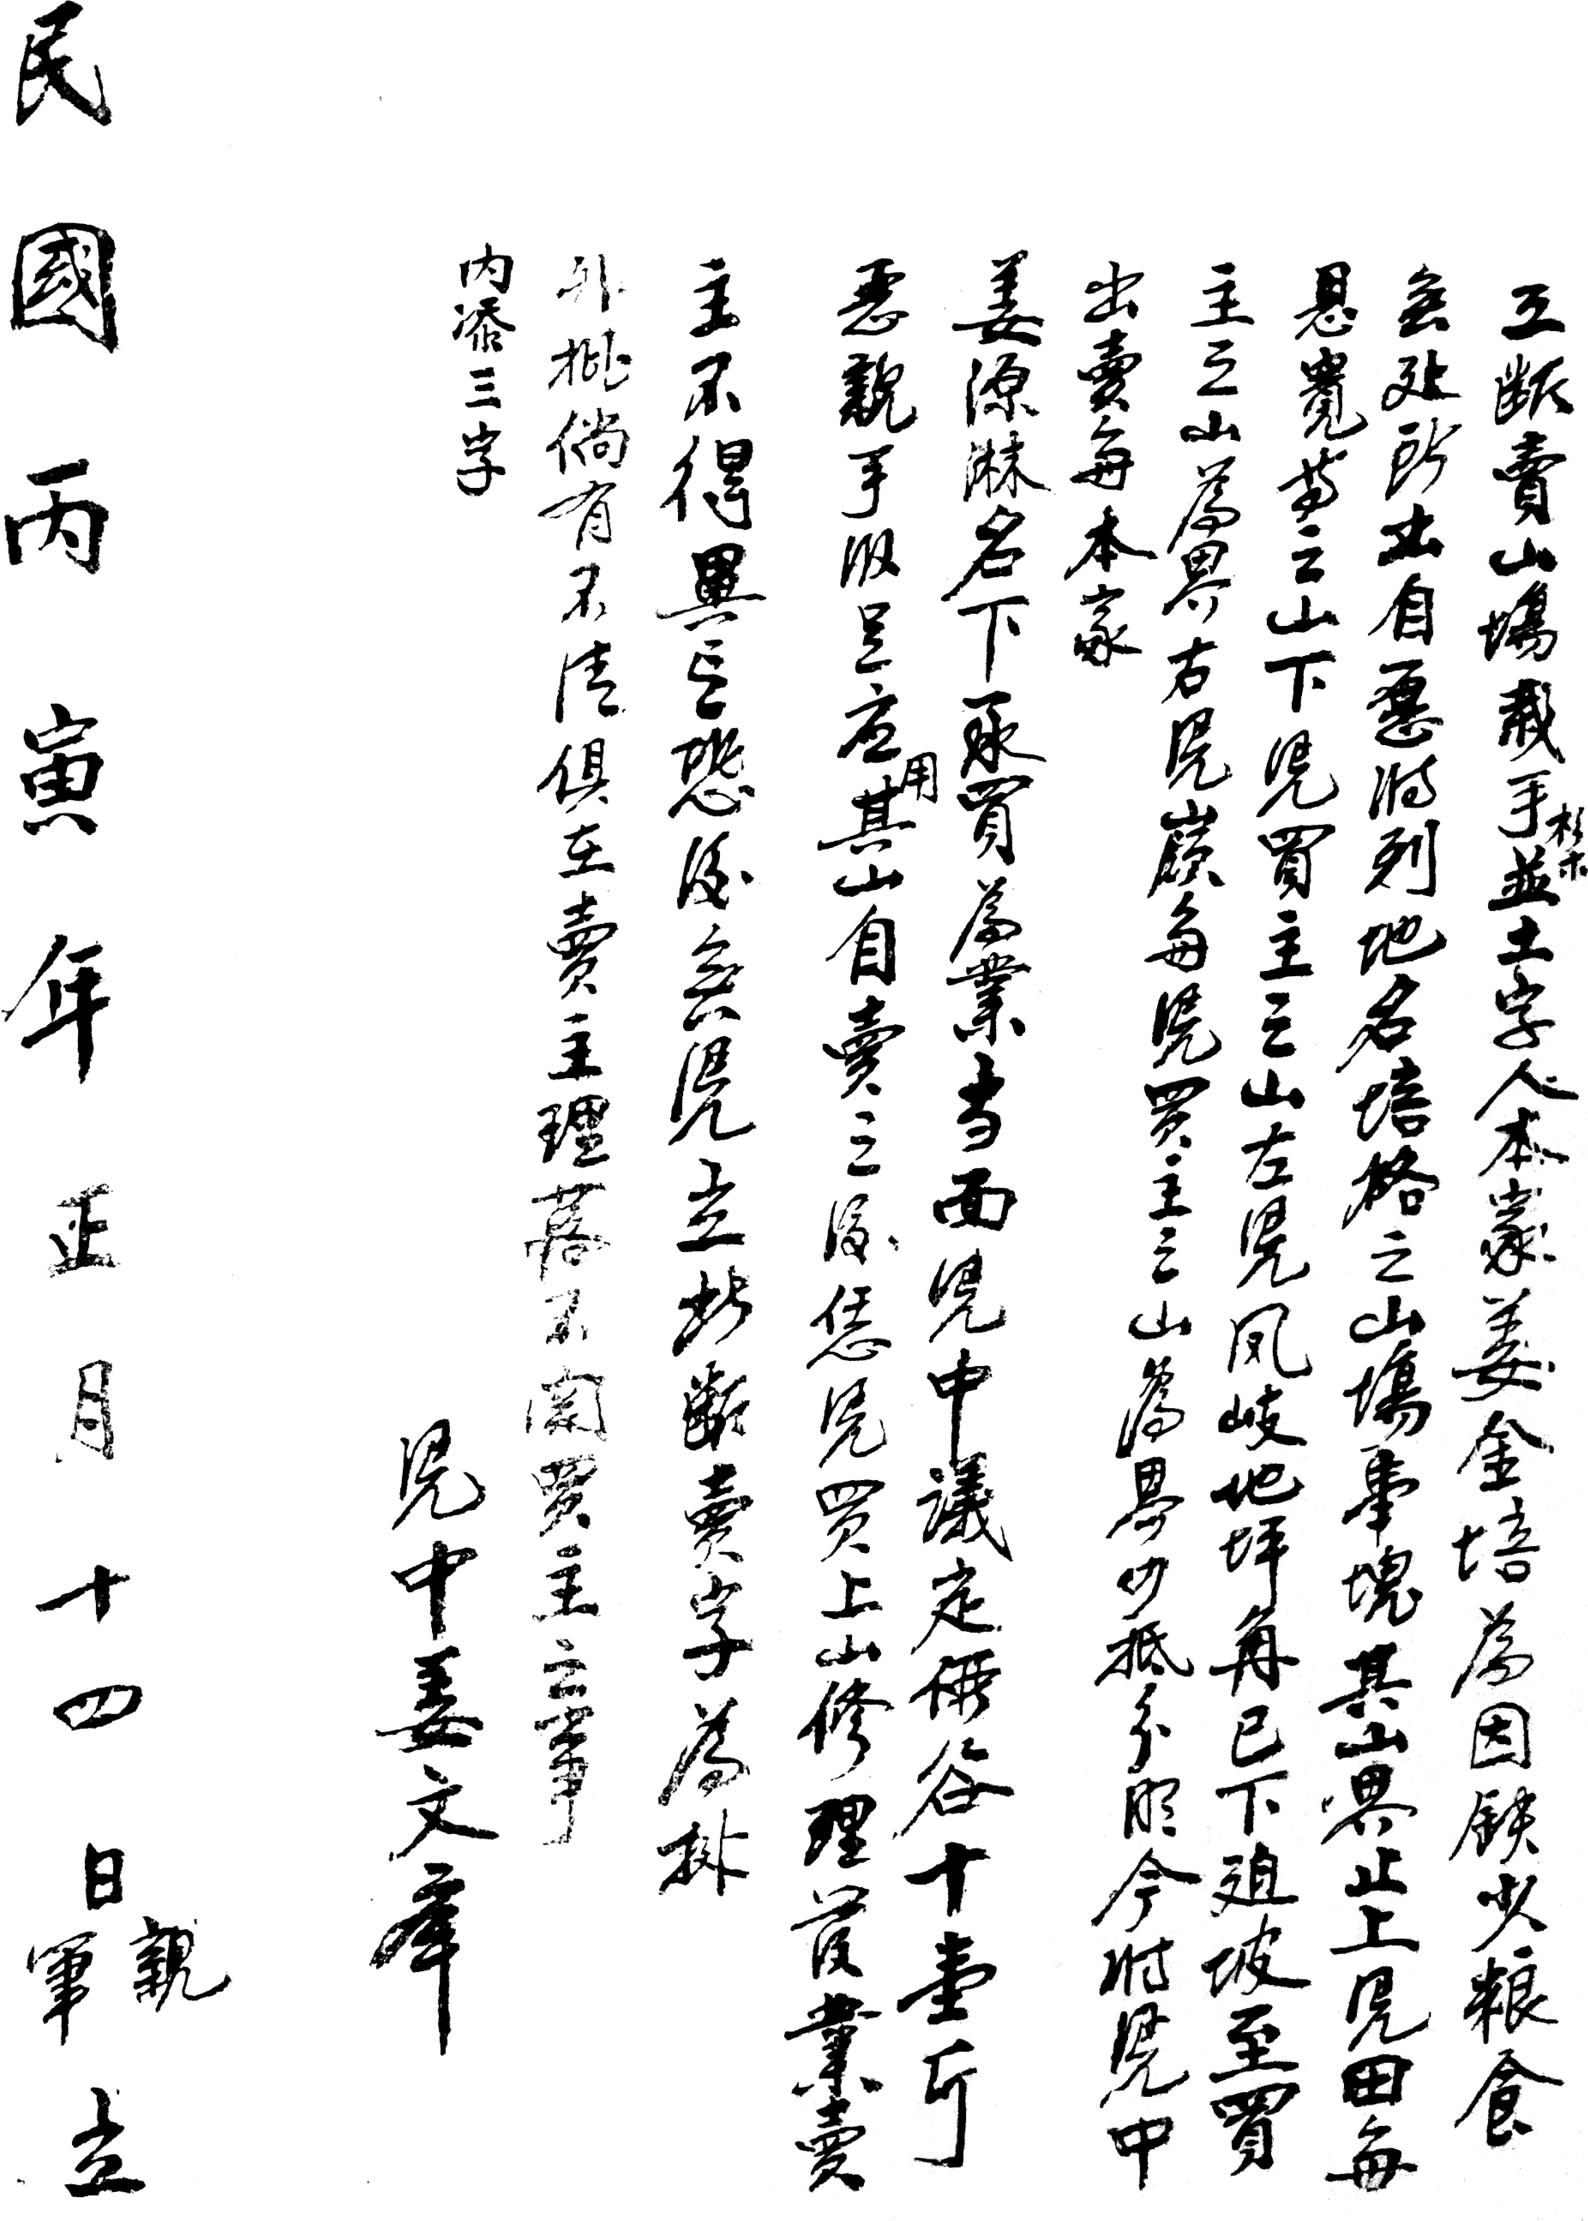 立斷賣山塲栽手杉木並土字人本家姜金培為因缺少粮食
無处所出自愿將到地名培格之山塲壹塊其山界止上凭田每
恳凴買主之山下凭買主之山左凭凤岐地坪角已下廸坡至買
主之山為界右凭嶺每凭买主之山為界四抵分明今将凭中
出賣每本家
姜源淋名下承買為業当面凭中議定價谷十壹斤
愿親手收足应用其山自賣之後恁凭買上山修理管業賣
主不得異言恐後無凭立此斷賣字為據
外批倘有不清俱在賣主理落不関買主之事
内添三字
凭中姜文舉
民國丙寅年正月十四日親筆立